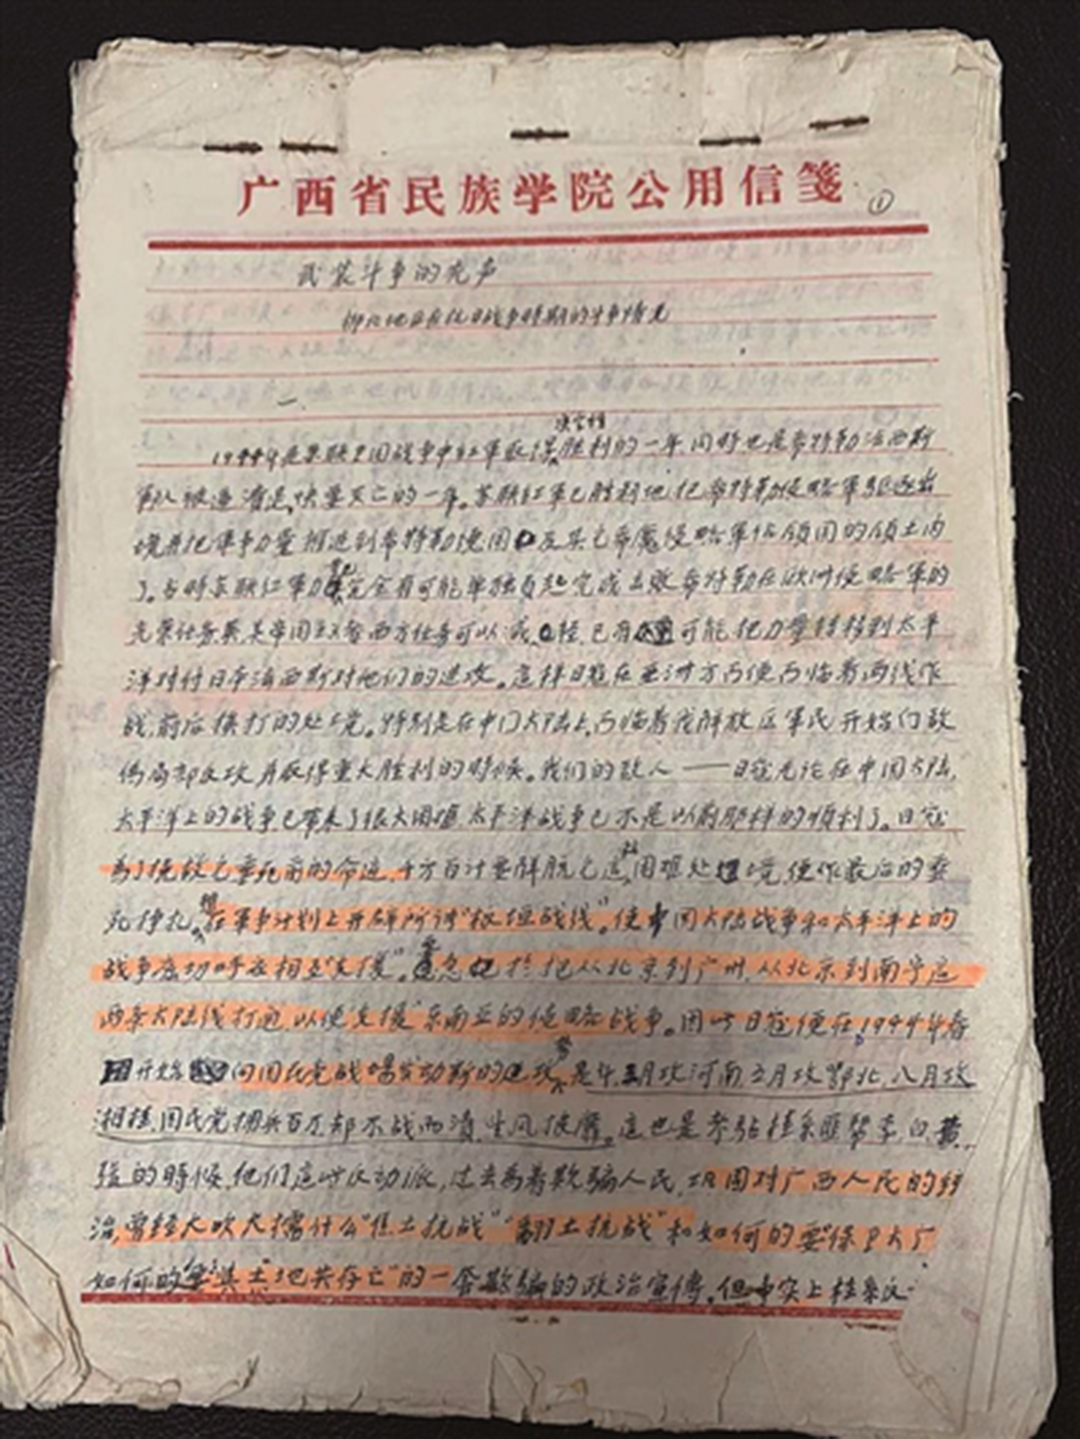 广西省民族学院公用信笺 ①
武装斗争的先声
柳北地区在抗日战争时期的斗争情况
决定性
1944年是苏联卫国战争中红军取得胜利的一年同时也是希特勒法西斯
军队被逐渐走灭亡的一年。苏联红军已胜利地把希特勒侵略军驱逐出
境并把军事力量推进到希特勒德国及其它希魔侵略军占领国的领土内
了。当时苏联红军力完全有可能单独负起完成击败希特勒在欧洲侵略军的
光荣任务英美帝国主义者西方任务可以减轻,已有可能把力量转移到太平
洋对付日本法西斯对他们的进攻。这样日寇在亚洲方面便面临着两线作
战,前后挨打的处境。特别是在中国大陆上,面临着我解放区军民开始向敌
伪局部反攻并取得重大胜利的时候。我们的敌人——日寇无论在中国大陆,
太平洋上的战争已带来了很大困难太平洋战争已不是以前那样的顺利了。日寇
为了挽救已垂死前的命运,千方百计要解脱它这困难处境,便作最后的垂
死挣扎。在军事计划上开辟所谓"板垣战线"。使中国大陆战争和太平洋上的
战争成功呼应相互"支援"。急于把从北京到广州,从北京到南宁这
两条大陆线打通,以便支援东南亚的侵略战争。因此日寇便在1944年春
开始向国民党战场发动新的进攻,是年三月攻河南五月攻鄂北,八月攻
湘桂,国民党拥兵百万,却不战而溃,望风披靡。这也是李张桂系匪帮李、白、黄、
张的时候,他们这些反动派,过去为着欺骗人民,巩固对广西人民的统
治,曾经大吹大擂什么"焦土抗战""翻土抗战"和如何的要"保卫大广
如何的与其土地共存亡"的一套欺骗的政治宣传。但事实上桂系反